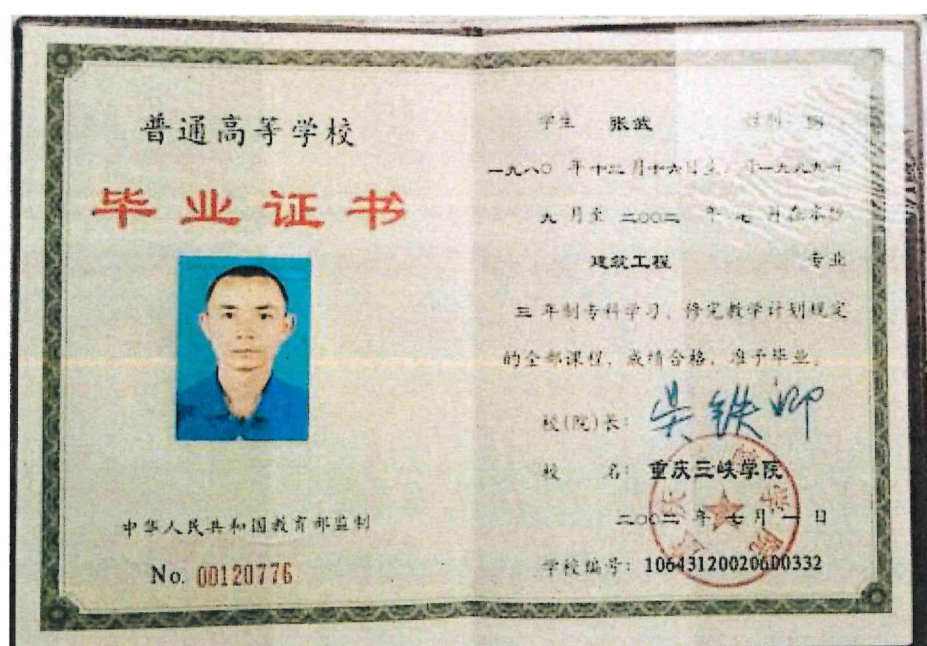 普通高等学校
毕业证书
中华人民共和国教育部监制
No. 00120776
学生 张武 性别: 男
一九八〇 年十二月十六日生, 于一九九九年
九 月至 二〇〇二 年 七 月在本校
建筑工程 专业
三 年制专科学习, 修完教学计划规定
的全部课程, 成绩合格, 准予毕业。
校(院)长: 吴铁卿
校 名: 重庆三峡学院
二〇〇二 年 七月 一 日
学校编号: 10643120020600332